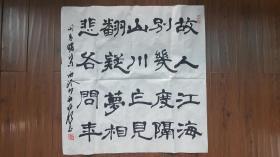 故人江海
别幾度隔
山川乍見
翻疑夢相
悲各問年